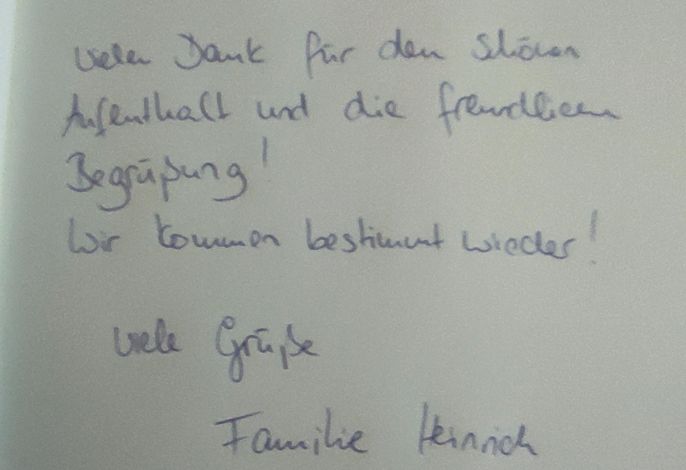 Vielen Dank für den schönen
Aufenthalt und die freundlichen
Begrüßung!
Wir kommen bestimmt wieder!
Viele Grüße
Familie Heinrich